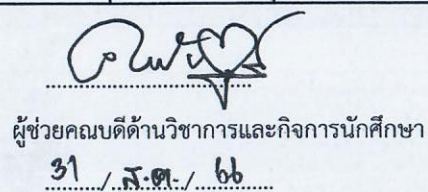 ผู้ช่วยคณบดีด้านวิชาการและกิจการนักศึกษา
31 / ส.ค. / 66